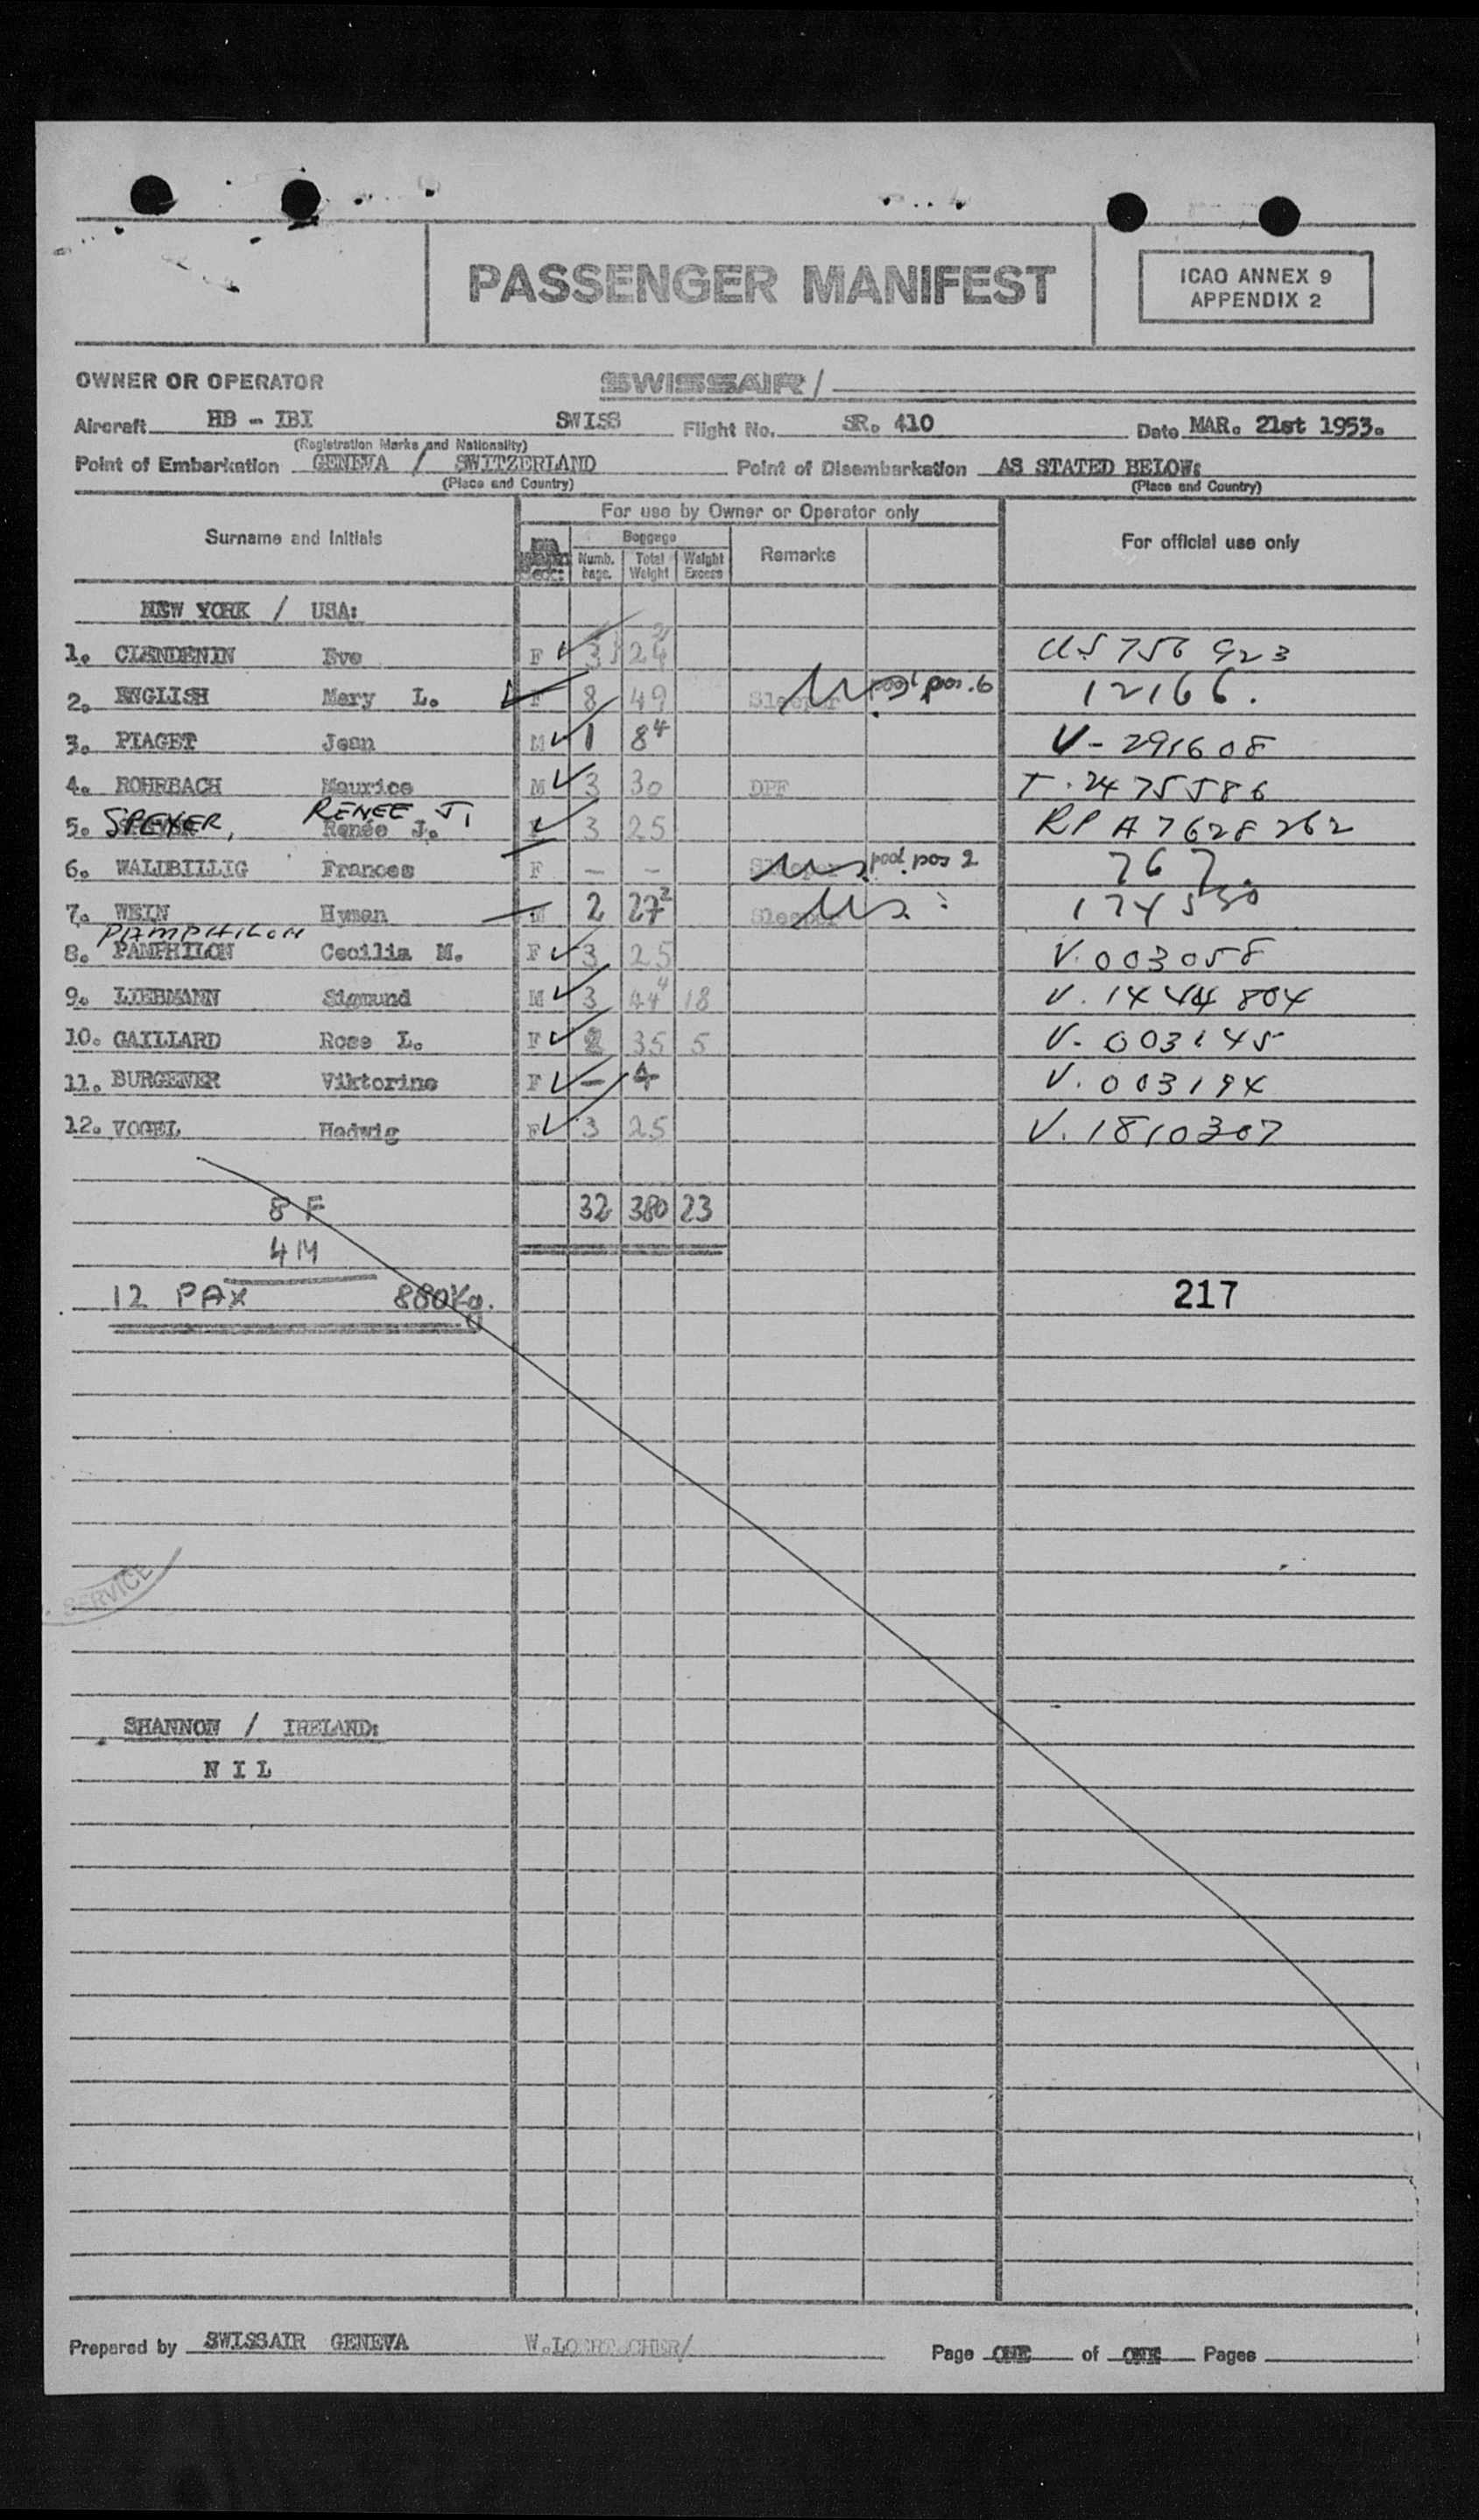 PASSENGER MANIFEST
ICAO ANNEX 9
APPENDIX 2
OWNER OR OPERATOR SWISSAIR/
Aircraft HB - IBI SWISS Flight No. SR. 410 Date MAR. 21st 1953.
(Registration Marks and Nationality)
Point of Embarkation GENEVA / SWITZERLAND Point of Disembarkation AS STATED BELOW:
(Place and Country) (Place and Country)
For use by Owner or Operator only
Surname and Initials Baggage Remarks For official use only
Sex: Numb. bags. Total Weight Weight Excess
NEW YORK / USA:
1. CLENDENIN Eve F 3 24 2 US 756 923
2. ENGLISH Mary L. F 8 49 Sleeper pos. 6 12166.
3. PIAGET Jean M 1 8 4 V - 291608
4. ROHRBACH Maurice M 3 30 DPF T. 2475586
SPEYER, RENEE J.
5. Renée J. F 3 25 RP A7628262
6. WALDBILLIG Frances F - - Sleeper pool pos 2 767.
7. WEIN Hyman M 2 27 2 Sleeper 174530
PAMPHILON
8. PAMPHILON Cecilia M. F 3 25 V. 003058
9. LIEBMANN Sigmund M 3 44 4 18 V. 1444804
10. GAILLARD Rose L. F 2 35 5 V - 003145
11. BURGENER Viktorine F - 4 V. 003194
12. VOGEL Hedwig F 3 25 V. 1810307
8 F 32 380 23
4 M
12 PAX 880 Kg. 217
SERVICE
SHANNON / IRELAND:
N I L
Prepared by SWISSAIR GENEVA Page ONE of ONE Pages